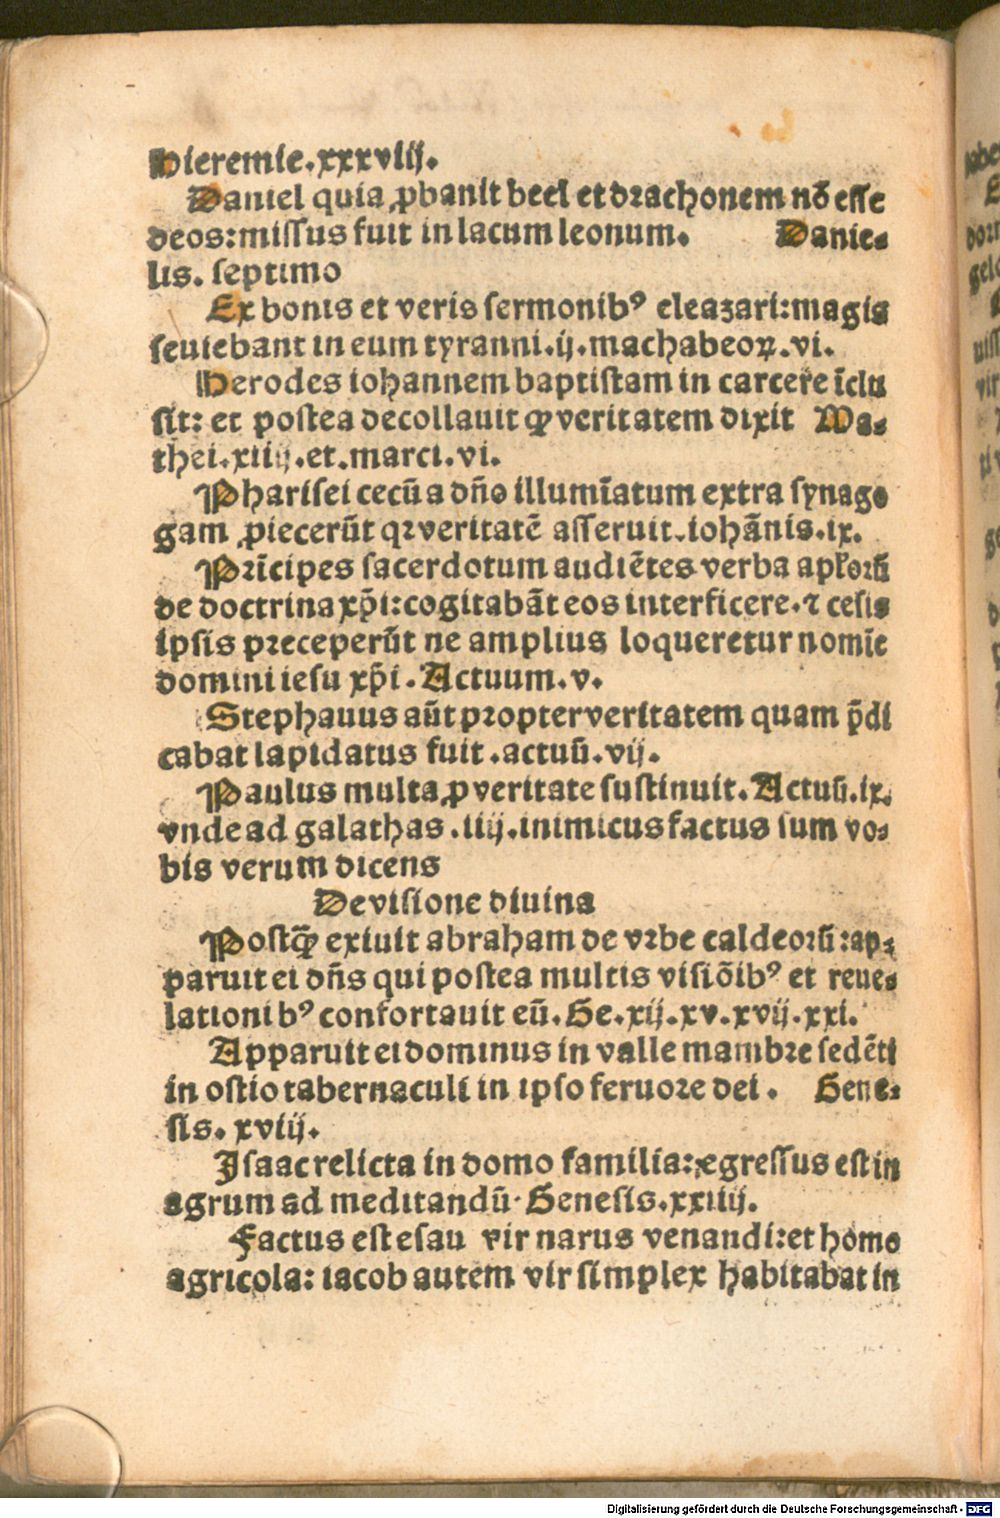 Hieremie.xxxviij.
Daniel quia ꝓbauit beel et drachonem nō esse
deos: missus fuit in lacum leonum. Danie-
lis. septimo
Ex bonis et veris sermonibꝰ eleazari: magis
seuiebant in eum tyranni.ij.machabeoꝝ.vi.
Herodes iohannem baptistam in carcere īclu
sit: et postea decollauit ꝙ veritatem dixit Ma-
thei.xiiij.et.marci.vi.
Pharisei cecū a dño illumīatum extra synago
gam ꝓiecerūt qꝛ veritatē asseruit.iohānis.ix.
Prīcipes sacerdotum audiētes verba apl'oꝛū
de doctrina xp̄i: cogitabāt eos interficere.⁊ cesis
ipsis preceperūt ne amplius loqueretur nomīe
domini iesu xp̄i. Actuum.v.
Stephauus aūt propter veritatem quam p̄di
cabat lapidatus fuit.actuū.vij.
Paulus multa ꝓ veritate sustinuit. Actuū.ix.
vnde ad galathas.iiij.inimicus factus sum vo-
bis verum dicens
De visione diuina
Postꝙ̄ exiuit abraham de vrbe caldeoꝛū: ap-
paruit ei dn̄s qui postea multis visiōibꝰ et reue-
lationibꝰ confortauit eū. Ge.xij.xv.xvij.xxi.
Apparuit ei dominus in valle mambre sedēti
in ostio tabernaculi in ipso feruore dei. Gene-
sis. xviij.
Isaac relicta in domo familia: egressus est in
agrum ad meditandū. Genesis.xxiiij.
Factus est esau vir narus venandi: et homo
agricola: iacob autem vir simplex habitabat in
Digitalisierung gefördert durch die Deutsche Forschungsgemeinschaft - DFG